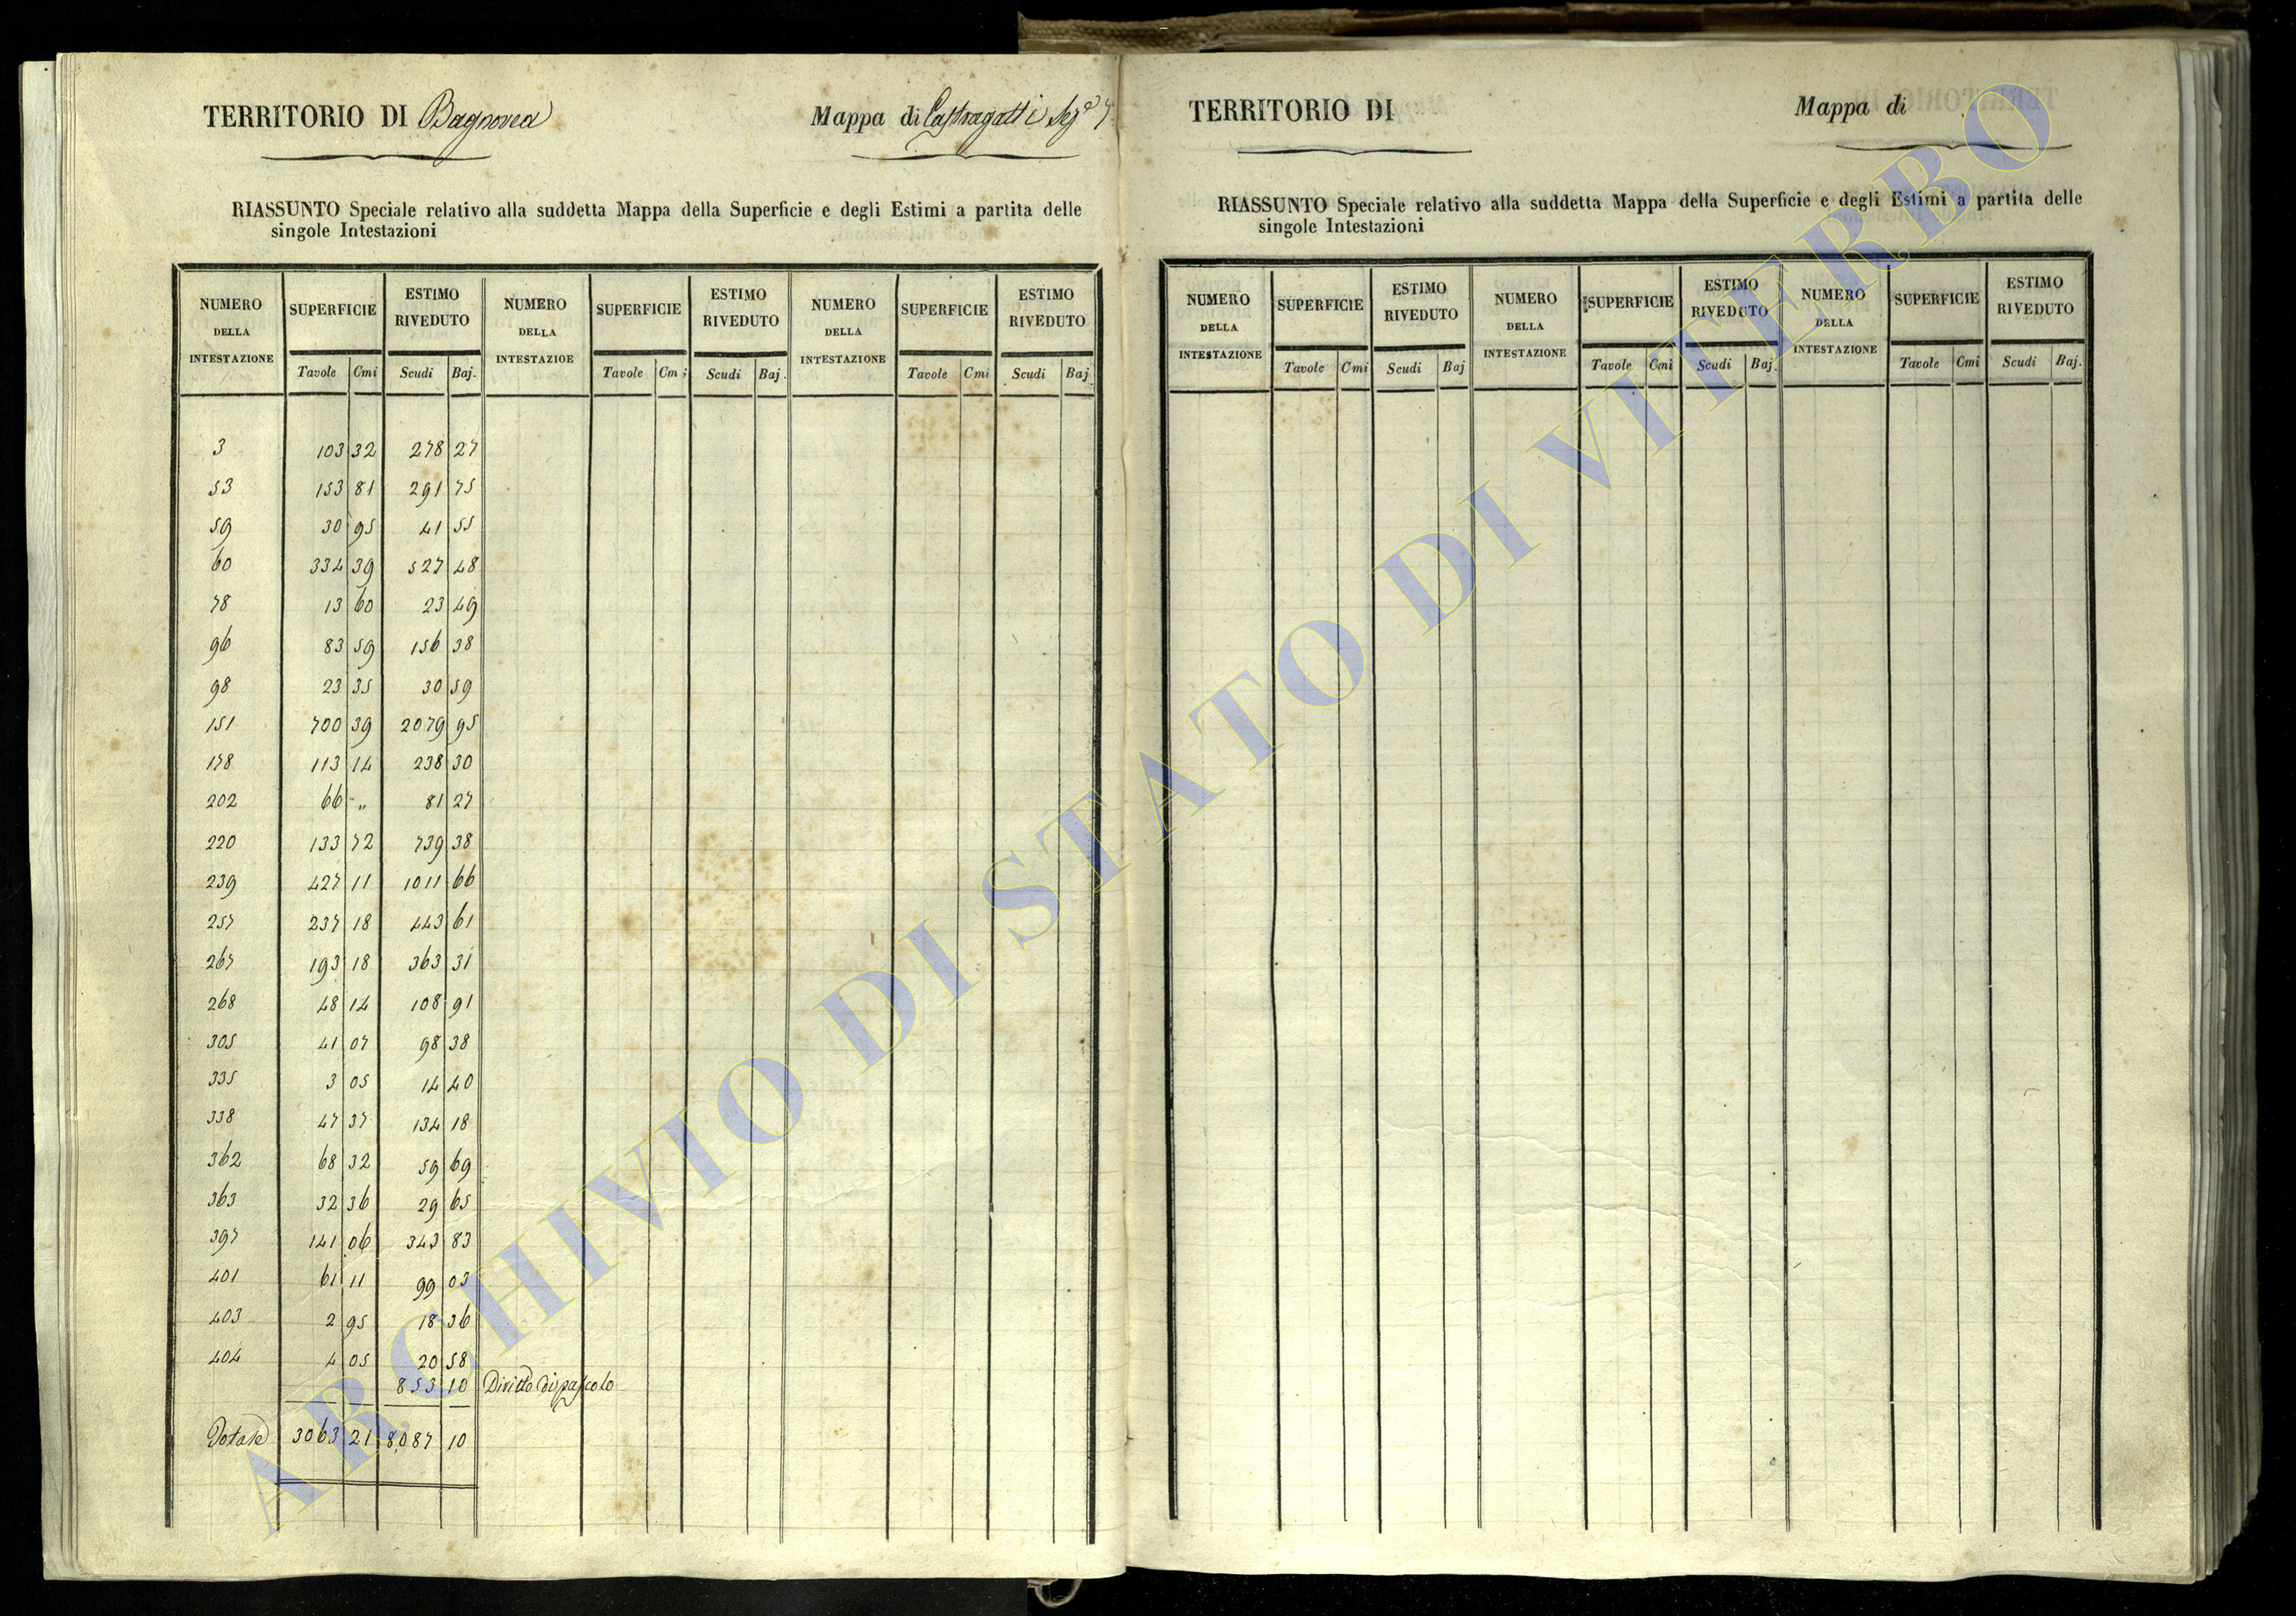 TERRITORIO DI Bagnorea
Mappa di Castragatti Sez.e 7
RIASSUNTO Speciale relativo alla suddetta Mappa della Superficie e degli Estimi a partita delle
singole Intestazioni
NUMERO DELLA INTESTAZIONE SUPERFICIE ESTIMO RIVEDUTO NUMERO DELLA INTESTAZIOE SUPERFICIE ESTIMO RIVEDUTO NUMERO DELLA INTESTAZIONE SUPERFICIE ESTIMO RIVEDUTO
Tavole Cmi Scudi Baj. Tavole Cmi Scudi Baj. Tavole Cmi Scudi Baj.
3 103 32 278 27
53 153 81 291 75
59 30 95 41 55
60 334 39 527 48
78 13 60 23 49
96 83 59 156 38
98 23 35 30 59
151 700 39 2079 95
178 113 14 238 30
202 66 " 81 27
220 133 72 739 38
239 427 11 1011 66
257 237 18 443 61
267 193 18 363 31
268 48 14 108 91
305 41 07 98 38
335 3 05 14 40
338 47 37 134 18
362 68 32 59 69
363 32 36 29 65
397 141 06 343 83
401 61 11 99 03
403 2 95 18 36
404 4 05 20 58
853 10 Diritto di pascolo
Totale 3063 21 8,087 10
TERRITORIO DI
Mappa di
RIASSUNTO Speciale relativo alla suddetta Mappa della Superficie e degli Estimi a partita delle
singole Intestazioni
NUMERO DELLA INTESTAZIONE SUPERFICIE ESTIMO RIVEDUTO NUMERO DELLA INTESTAZIONE SUPERFICIE ESTIMO RIVEDUTO NUMERO DELLA INTESTAZIONE SUPERFICIE ESTIMO RIVEDUTO
Tavole Cmi Scudi Baj Tavole Cmi Scudi Baj. Tavole Cmi Scudi Baj.
ARCHIVIO DI STATO DI VITERBO